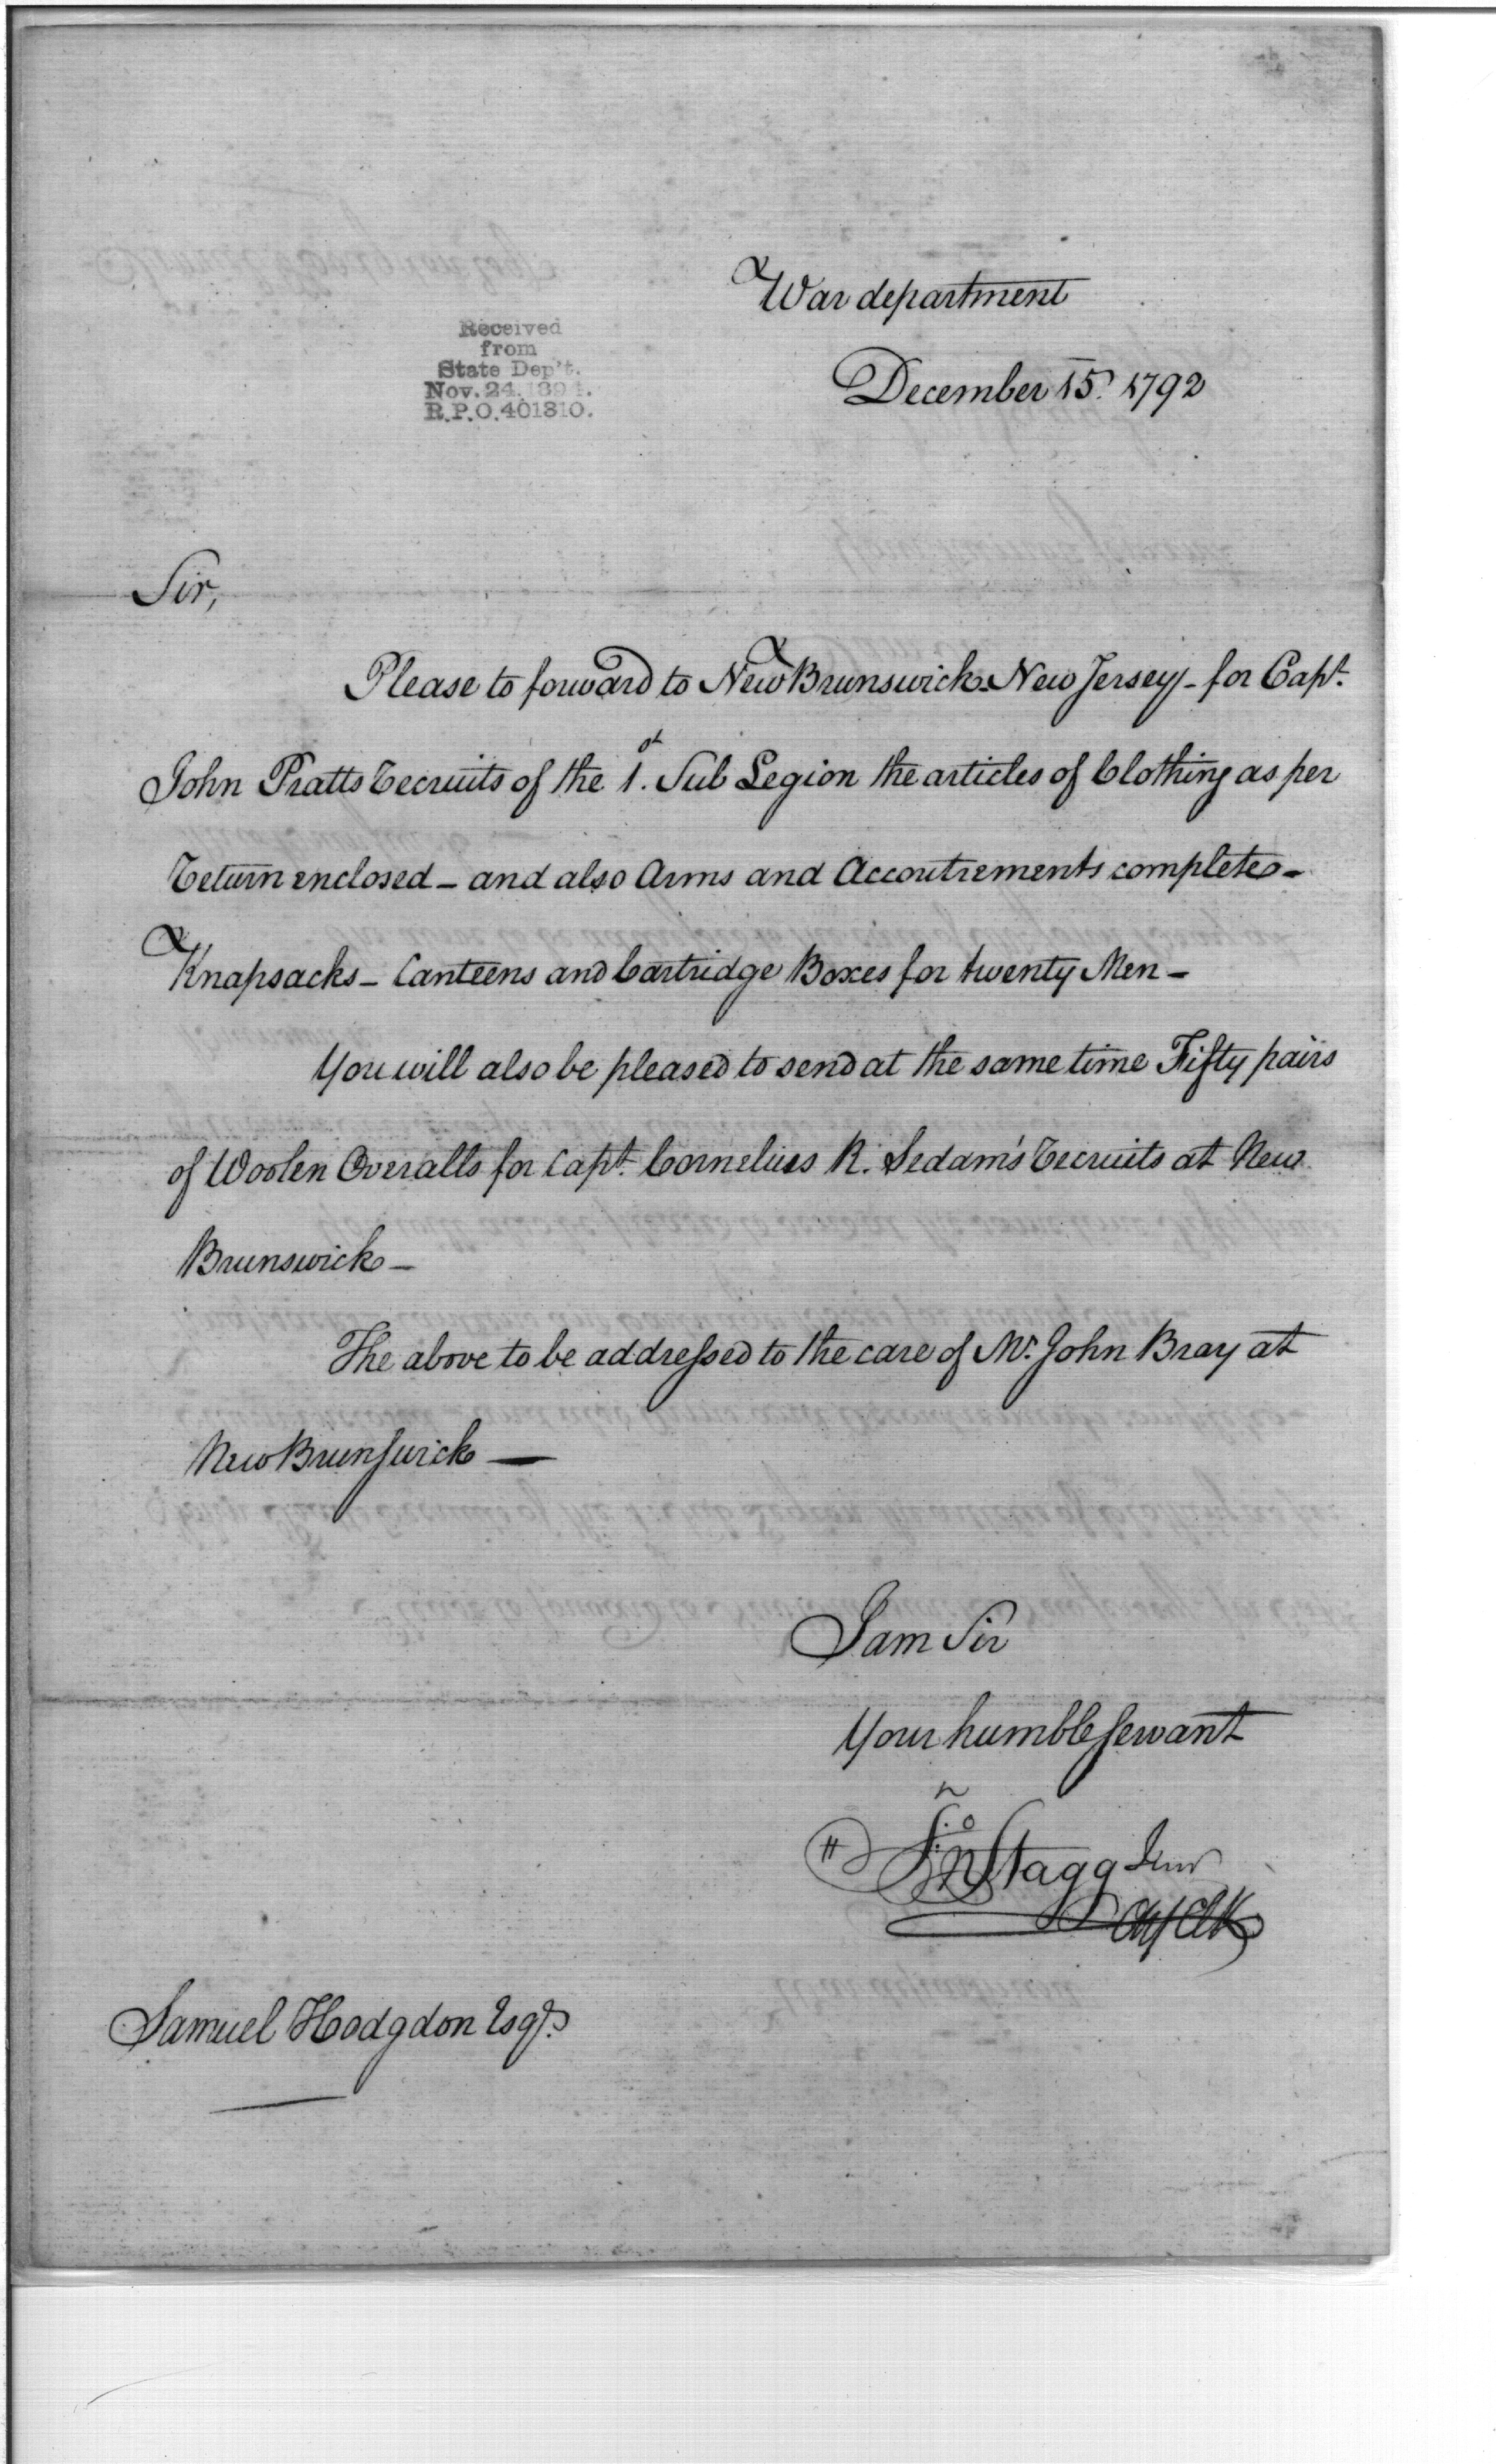 War department
December 15. 1792
Received
from
State Dep't.
Nov. 24. 1894.
R.P.O. 401310.
Sir,
Please to forward to New Brunswick - New Jersey - for Capt.
John Pratts recruits of the 1.st Sub Legion the articles of Clothing as per
return enclosed - and also Arms and Accoutrements complete -
Knapsacks - Canteens and Cartridge Boxes for twenty Men -
You will also be pleased to send at the same time Fifty pairs
of Woolen Overalls for Capt. Cornelius R. Sedam's recruits at New
Brunswick -
The above to be addressed to the care of Mr. John Bray at
New Brunswick —
I am Sir
Your humble servant
Jno Stagg Junr
Chf Clk
Samuel Hodgdon Esqr.